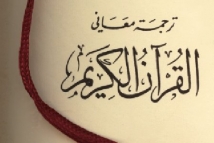 ترجمة معاني
القرآن الكريم